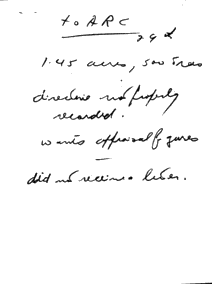 to ARC
1.45 acres, 500 trees
directions not properly
recorded.
wants appraisal figures
did not receive letter.